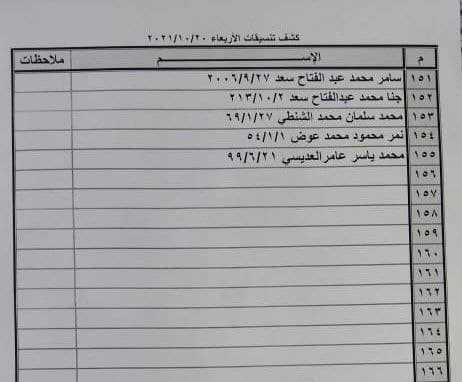 كشف تنسيقات الاربعاء ٢٠٢١/١٠/٢٠
م الإســـــم ملاحظات
١٥١ سامر محمد عبد الفتاح سعد ٢٠٠٦/٩/٢٧
١٥٢ جنا محمد عبدالفتاح سعد ٢١٣/١٠/٢
١٥٣ محمد سلمان محمد الشنطي ٦٩/١/٢٧
١٥٤ نمر محمود محمد عوض ٥٤/١/١
١٥٥ محمد ياسر عامرالعديسي ٩٩/٦/٢١
١٥٦
١٥٧
١٥٨
١٥٩
١٦٠
١٦١
١٦٢
١٦٣
١٦٤
١٦٥
١٦٦